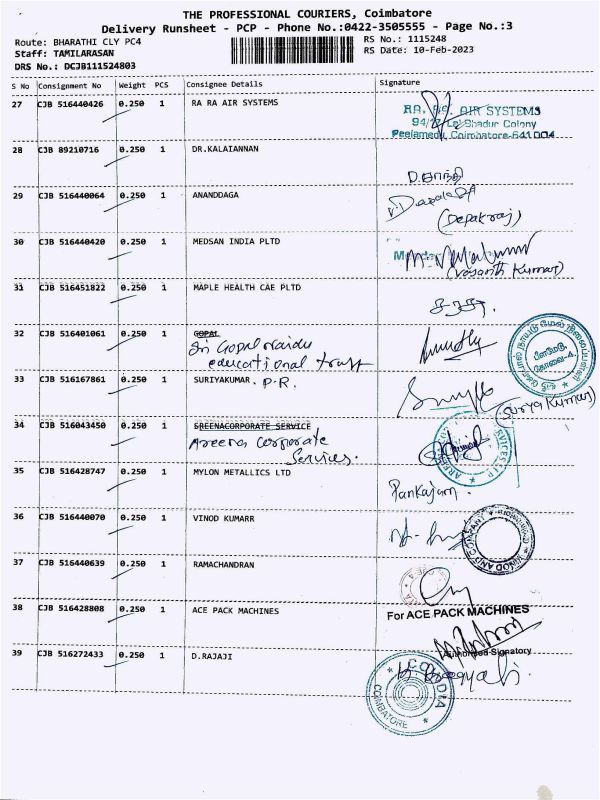 THE PROFESSIONAL COURIERS, Coimbatore
Delivery Runsheet - PCP - Phone No.:0422-3505555 - Page No.:3
Route: BHARATHI CLY PC4 RS No.: 1115248
Staff: TAMILARASAN RS Date: 10-Feb-2023
DRS No.: DCJB111524803
S No Consignment No Weight PCS Consignee Details Signature
27 CJB 516440426 0.250 1 RA RA AIR SYSTEMS
RA. RA. AIR SYSTEMS
Lal Bahadur Colony
Peelamedu, Coimbatore-641 004
28 CJB 89210716 0.250 1 DR.KALAIANNAN
29 CJB 516440064 0.250 1 ANANDDAGA
(Depakraj)
30 CJB 516440420 0.250 1 MEDSAN INDIA PLTD
(Vasanth Kumar)
31 CJB 516451822 0.250 1 MAPLE HEALTH CAE PLTD
32 CJB 516401061 0.250 1 GOPAL
Sri Gopal Naidu
educational trust
33 CJB 516167861 0.250 1 SURIYAKUMAR. P.R.
(Surya Kumar)
34 CJB 516043450 0.250 1 SREENACORPORATE SERVICE
Areena Corporate
Services.
35 CJB 516428747 0.250 1 MYLON METALLICS LTD
Pankajam.
36 CJB 516440070 0.250 1 VINOD KUMARR
37 CJB 516440639 0.250 1 RAMACHANDRAN
38 CJB 516428808 0.250 1 ACE PACK MACHINES
For ACE PACK MACHINES
Authorised Signatory
39 CJB 516272433 0.250 1 D.RAJAJI
COIMBATORE